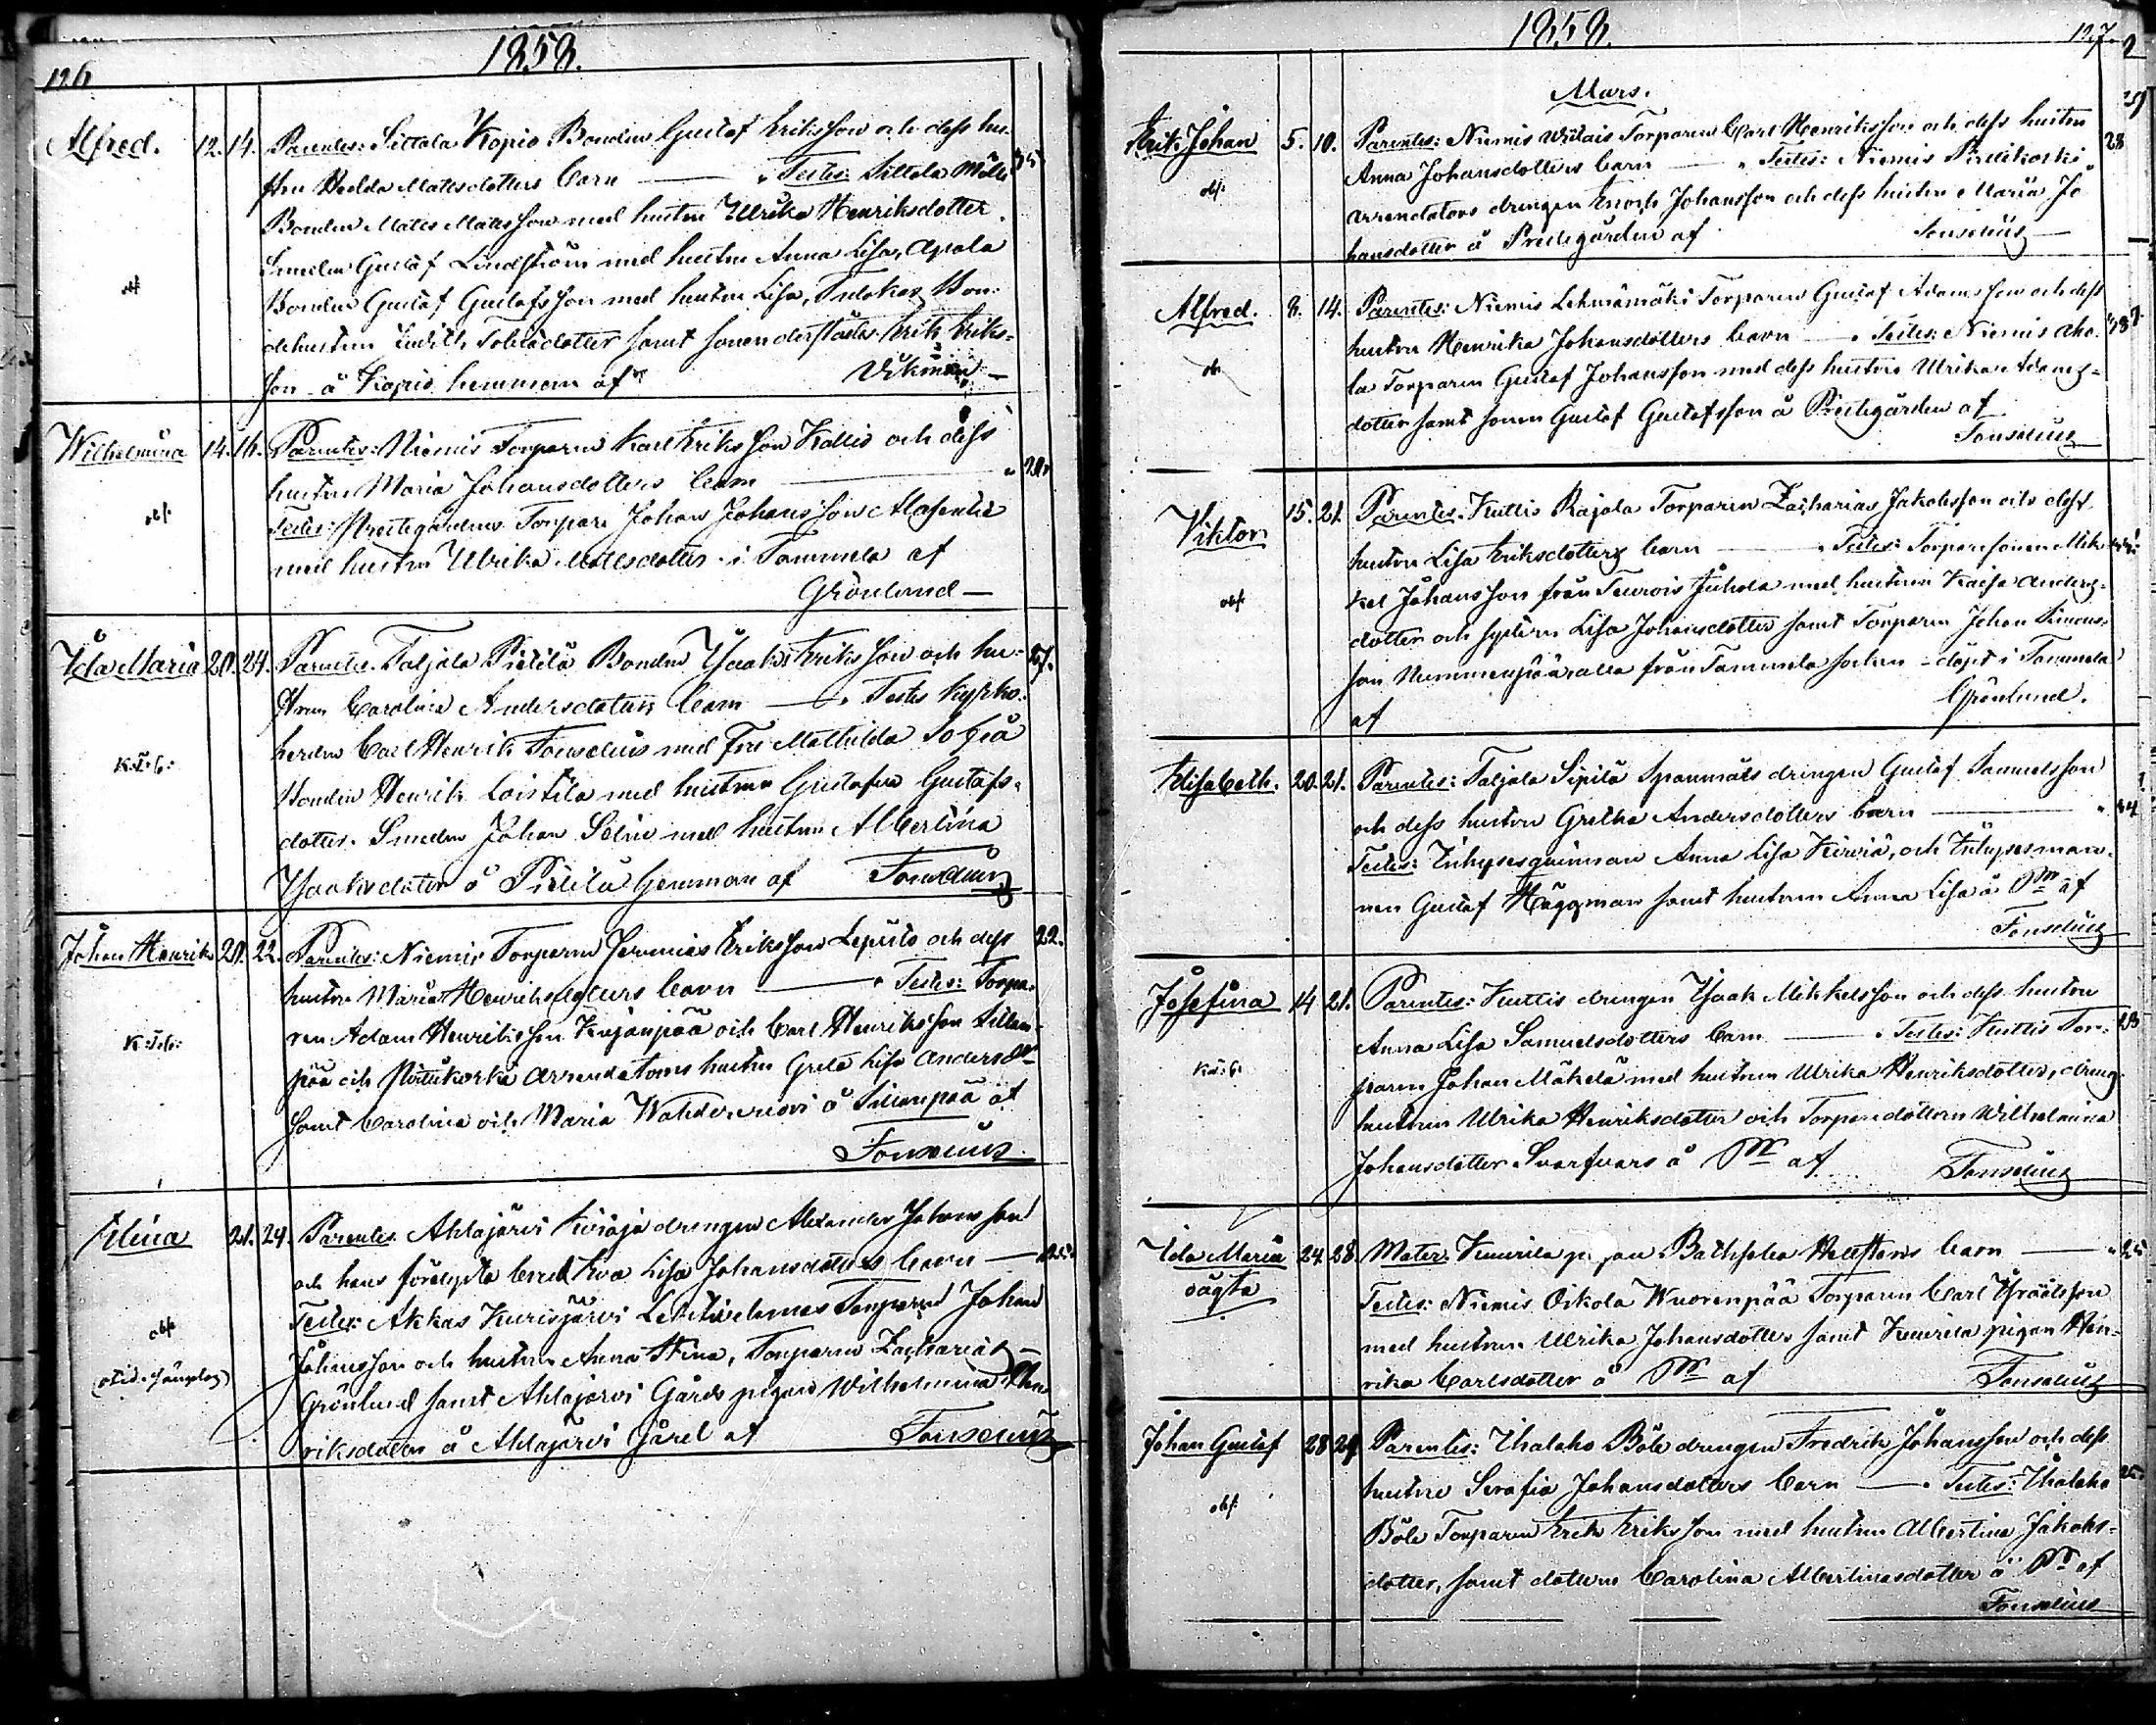 126
1858.
Alfred. 12. 14. Parentes: Sittala Kopio Bonden Gustaf Eriksson och dess hu-
stru Hedda Matsdotters barn — Testes: Sittala
Bonden Matts Mattsson med hustru Ulrika Henriksdotter.
Smeden Gustaf Lindström med hustru Anna Lisa,
Bonden Gustaf Gustafsson med hustru Lisa, Bon-
dehustrun Judith Tobiædotter samt sonen Erik Eriks-
son å Kopio hemman af Vikman
Wilhelmina 14. 16. Parentes: Niemis Torparen Karl Eriksson Kallio och dess
hustru Maria Johansdotters barn
Testes: Prestegårdens Torpare Johan Johansson
med hustru Ulrika Mattsdotter i Tammela af
Grönlund —
Ida Maria 20. 24. Parentes. Taljala Pietilä Bonden Isaak Eriksson och hu- 27.
strun Carolina Andersdotters barn — Testes Kyrko-
herden Carl Henrik Fonselius med Fru Mathilda Sofia
Bonden Henrik Loistila med hustrun Gustafva Gustafs-
dotter. Smeden Johan Selin med hustrun Albertina
Isaaksdotter å Pietilä hemman af Fonselius
Johan Henrik 20. 22. Parentes: Niemis Torparen Jeremias Eriksson Lepistö och dess 22.
hustru Maria Henriksdotters barn — Testes: Torpa-
ren Adam Henriksson Kujanpää och Carl Henriksson Sillan-
pää och arrendatorns hustru Greta Lisa
samt Carolina och Maria å Sillanpää af
Fonselius
Elina 21. 24. Parentes Ahlajärvi drengen Alexander Johansson
och hans förelofvade Eva Lisa Johansdotters barn —
Testes: Akkas Kurisjärvi Torparen Johan
Johansson och hustrun Anna Stina, Torparen Zacharias
Grönlund samt Ahlajärvi Gårds pigan Wilhelmina Hen-
riksdotter å Ahlajärvi Gård af Fonselius
1858. 127.
Mars.
Erik Johan 5. 10. Parentes: Niemis Torparen Carl Henriksson och dess hustru 28
Anna Johansdotters barn — Testes: Niemis
arrendators drengen Enoch Johansson och dess hustru Maria Jo-
hansdotter å Prestegården af Fonselius
Alfred. 8. 14. Parentes: Niemis Lehmämäki Torparen Gustaf Adamsson och dess
hustru Henrika Johansdotters barn — Testes: Niemis Aho-
la Torparen Gustaf Johansson med dess hustru Ulrika Adams-
dotter samt sonen Gustaf Gustafsson å Prestegården af
Fonselius
Viktor 15. 21. Parentes. Kuttis Rajala Torparen Zacharias Jakobsson och dess
hustru Lisa Eriksdotters barn — Testes: Torparesonen Mik-
kel Johansson från Teurois Juhola med hustrun Kaisa Anders-
dotter och system Lisa Johansdotter samt Torparen Johan Simons-
son Nummenpää från Tammela socken – döpt i Tammela
af Grönlund.
Elisabeth. 20. 21. Parentes: Taljala Sipilä Spannmåls drengen Gustaf Samuelsson
och dess hustru Gretha Andersdotters barn — 34
Testes: Inhysesqvinnan Anna Lisa och Inhysesman-
nen Gustaf Häggman samt hustrun Anna Lisa å af
Fonselius
Josefina 14 21. Parentes: Kuttis drengen Isaak Mikkelsson och dess hustru
Anna Lisa Samuelsdotters barn — Testes: Kuttis Tor- 23
paren Johan Mäkelä med hustrun Ulrika Henriksdotter, dreng-
hustrun Ulrika Henriksdotter och Torparedottern Wilhelmina
Johansdotter Svarfvars å af Fonselius
Ida Maria oägta 24 28 Mater. pigan Bathseba barn — 25
Testes: Niemis Oikola Wuorenpää Torparen Carl
med hustrun Ulrika Johansdotter samt pigan Hen-
rika Carlsdotter å af Fonselius
Johan Gustaf 28 29 Parentes: Thalaho Böle drengen Fredrik Johansson och dess
hustru Serafia Johansdotters barn — Testes: Thalaho
Böle Torparen Erik Eriksson med hustrun Albertina Jakobs-
dotter, samt dottern Carolina Albertinasdotter å af
Fonselius